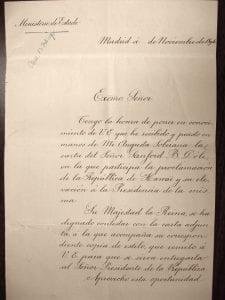 Ministerio de Estado
Madrid á de Noviembre de 1894
Excmo Señor
Tengo la honra de poner en conoci-
miento de V.E. que he recibido y puesto en
manos de Mi Augusta Soberana la
carta del Señor Sanford B. Dole
en la que participa la proclamacion
de la República de Hawai y su ele-
vación á la Presidencia de la mis-
ma.
Su Majestad la Reina, se ha
dignado contestar con la carta adjun-
ta, á la que acompaña su correspon-
diente copia de estilo, que remito á
V.E. para que se sirva entregarla
al Señor Presidente de la República
Aprovecho esta oportunidad